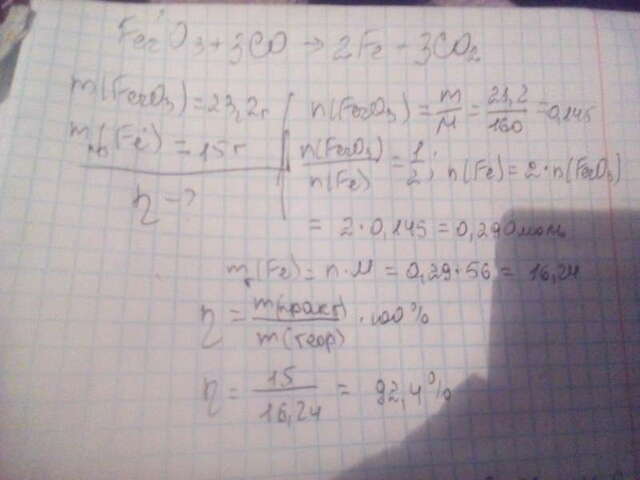 Fe₂O₃ + 3CO → 2Fe - 3CO₂
m(Fe₂O₃) = 23,2г
n(Fe₂O₃) = m/M = 23,2/160 = 0,145
mпр(Fe) = 15г
n(Fe₂O₃)/n(Fe) = 1/2; n(Fe) = 2·n(Fe₂O₃)
η - ?
= 2·0,145 = 0,290моль
mт(Fe) = n·M = 0,29·56 = 16,24
η = m(практ)/m(теор) · 100%
η = 15/16,24 = 92,4%